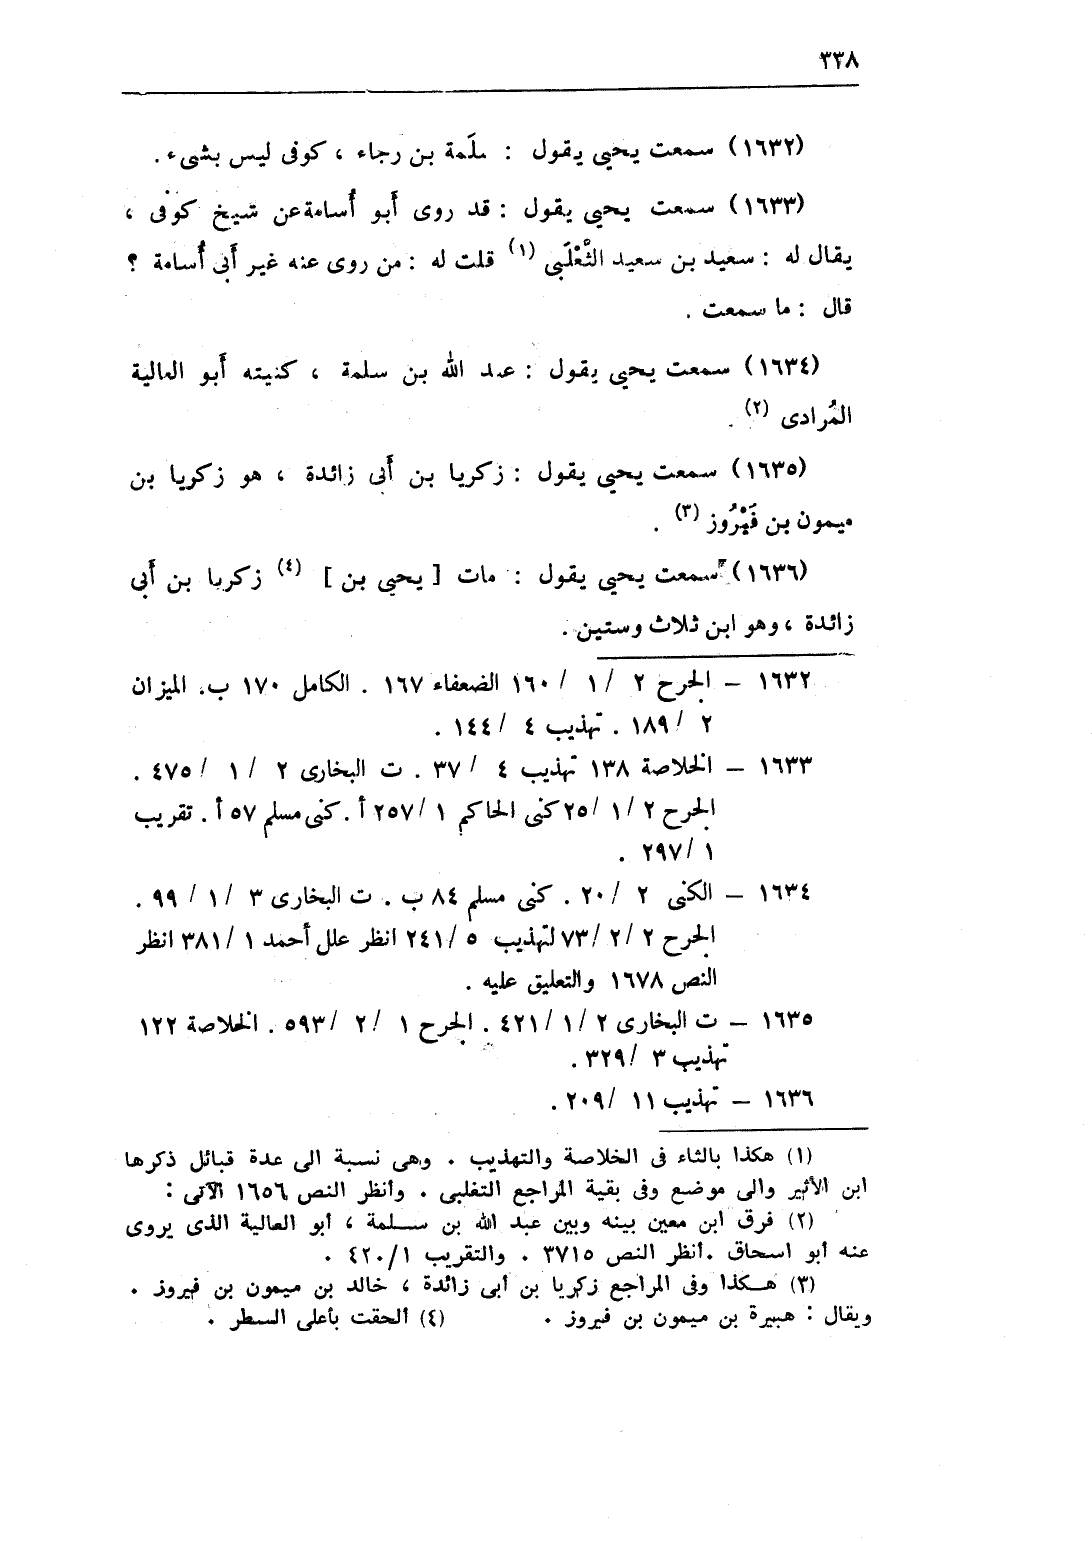 ٣٣٨
(١٦٣٢) سمعت يحيى يقول : سلَمة بن رجاء ، كوفى ليس بشىء .
(١٦٣٣) سمعت يحيى يقول : قد روى أَبو أُسامة عن شيخ كوفى ،
يقال له : سعيد بن سعيد الثَّعْلَبى (١) قلت له : من روى عنه غير أَبى أُسامة ؟
قال : ما سمعت .
(١٦٣٤) سمعت يحيى يقول : عبد الله بن سلمة ، كنيته أَبو العالية
المُرادى (٢) .
(١٦٣٥) سمعت يحيى يقول : زكريا بن أَبى زائدة ، هو زكريا بن
ميمون بن فَيْرُوز (٣) .
(١٦٣٦) سمعت يحيى يقول : مات [ يحيى بن ] (٤) زكريا بن أَبى
زائدة ، وهو ابن ثلاث وستين .
١٦٣٢ – الجرح ٢ / ١ / ١٦٠ الضعفاء ١٦٧ . الكامل ١٧٠ ب. الميزان
٢ / ١٨٩ . تهذيب ٤ / ١٤٤ .
١٦٣٣ – الخلاصة ١٣٨ تهذيب ٤ / ٣٧ . ت البخارى ٢ / ١ / ٤٧٥ .
الجرح ٢ / ١ / ٢٥ كنى الحاكم ١ / ٢٥٧ أ . كنى مسلم ٥٧ أ . تقريب
١ / ٢٩٧ .
١٦٣٤ – الكنى ٢ / ٢٠ . كنى مسلم ٨٤ ب . ت البخارى ٣ / ١ / ٩٩ .
الجرح ٢ / ٢ / ٧٣ لتهذيب ٥ / ٢٤١ انظر علل أحمد ١ / ٣٨١ انظر
النص ١٦٧٨ والتعليق عليه .
١٦٣٥ – ت البخارى ٢ / ١ / ٤٢١ . الجرح ١ / ٢ / ٥٩٣ . الخلاصة ١٢٢
تهذيب ٣ / ٣٢٩ .
١٦٣٦ – تهذيب ١١ / ٢٠٩ .
(١) هكذا بالثاء فى الخلاصة والتهذيب . وهى نسبة الى عدة قبائل ذكرها
ابن الأثير والى موضع وفى بقية المراجع التغلبى . وأنظر النص ١٦٥٦ الآتى :
(٢) فرق ابن معين بينه وبين عبد الله بن سلمة ، أبو العالية الذى يروى
عنه أبو اسحاق .أنظر النص ٣٧١٥ . والتقريب ٤٢٠/١ .
(٣) هكذا وفى المراجع زكريا بن أبى زائدة ، خالد بن ميمون بن فيروز .
ويقال : هبيرة بن ميمون بن فيروز . (٤) ألحقت بأعلى السطر .